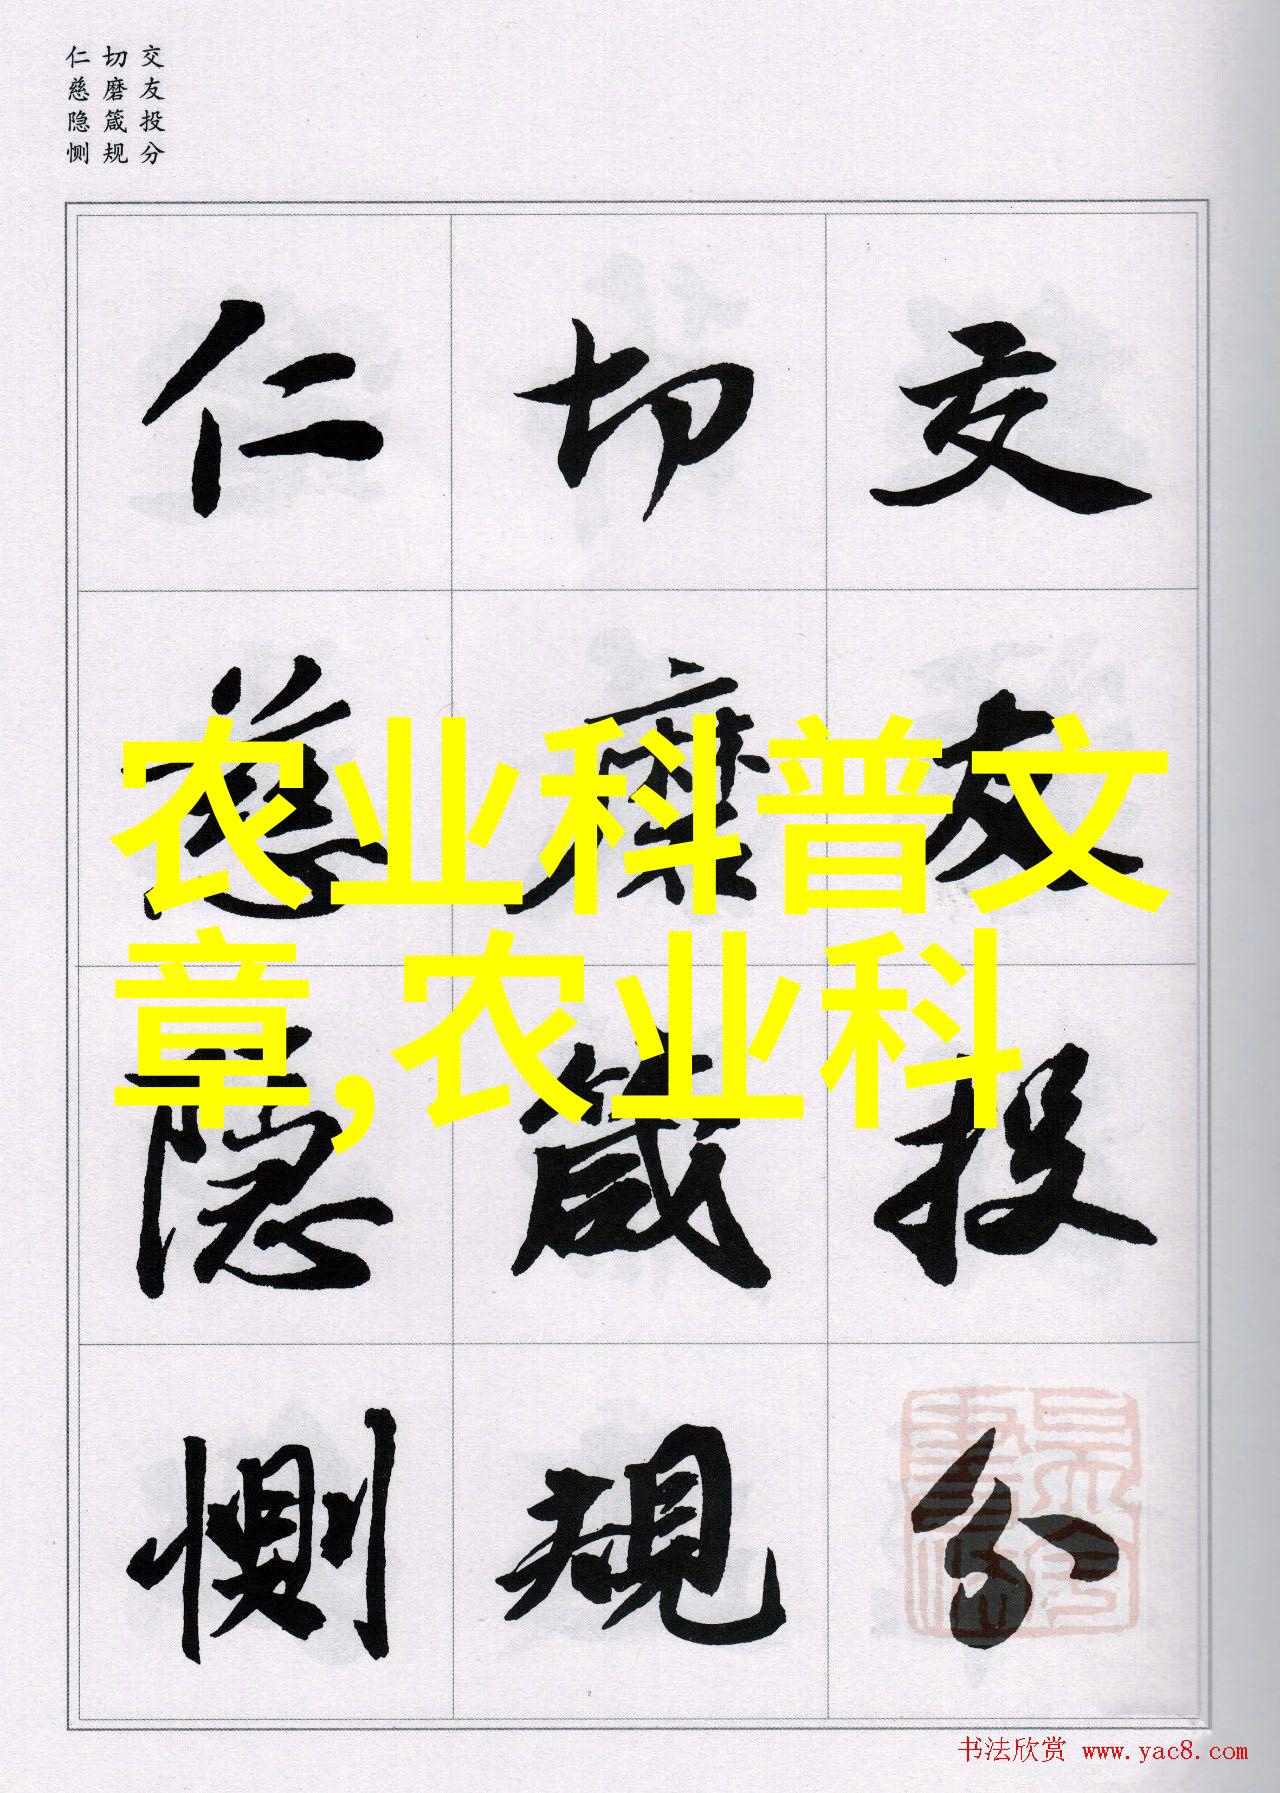 交友投分
切磨箴规
仁慈隐恻
交友投分
切磨箴規
仁慈隐恻
农业科普文
章,农业科
书法欣赏 www.yac8.com